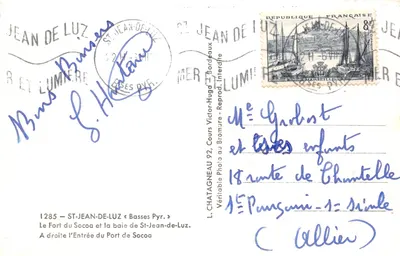 ST-JEAN DE LUZ
MER ET LUMIÈRE
ST-JEAN-DE-LUZ
BSES PYR.
RÉPUBLIQUE FRANÇAISE
8F
Bons Baisers
1285 - ST-JEAN-DE-LUZ « Basses Pyr. »
Le Fort du Socoa et la baie de St-Jean-de-Luz.
A droite l'Entrée du Port de Socoa
L. CHATAGNEAU 92, Cours Victor-Hugo - Bordeaux
Véritable Photo au Bromure - Reprod. interdite
Me Grobost
et ses enfants
18 route de Chantelle
St Pourçain-s-Sioule
(Allier)